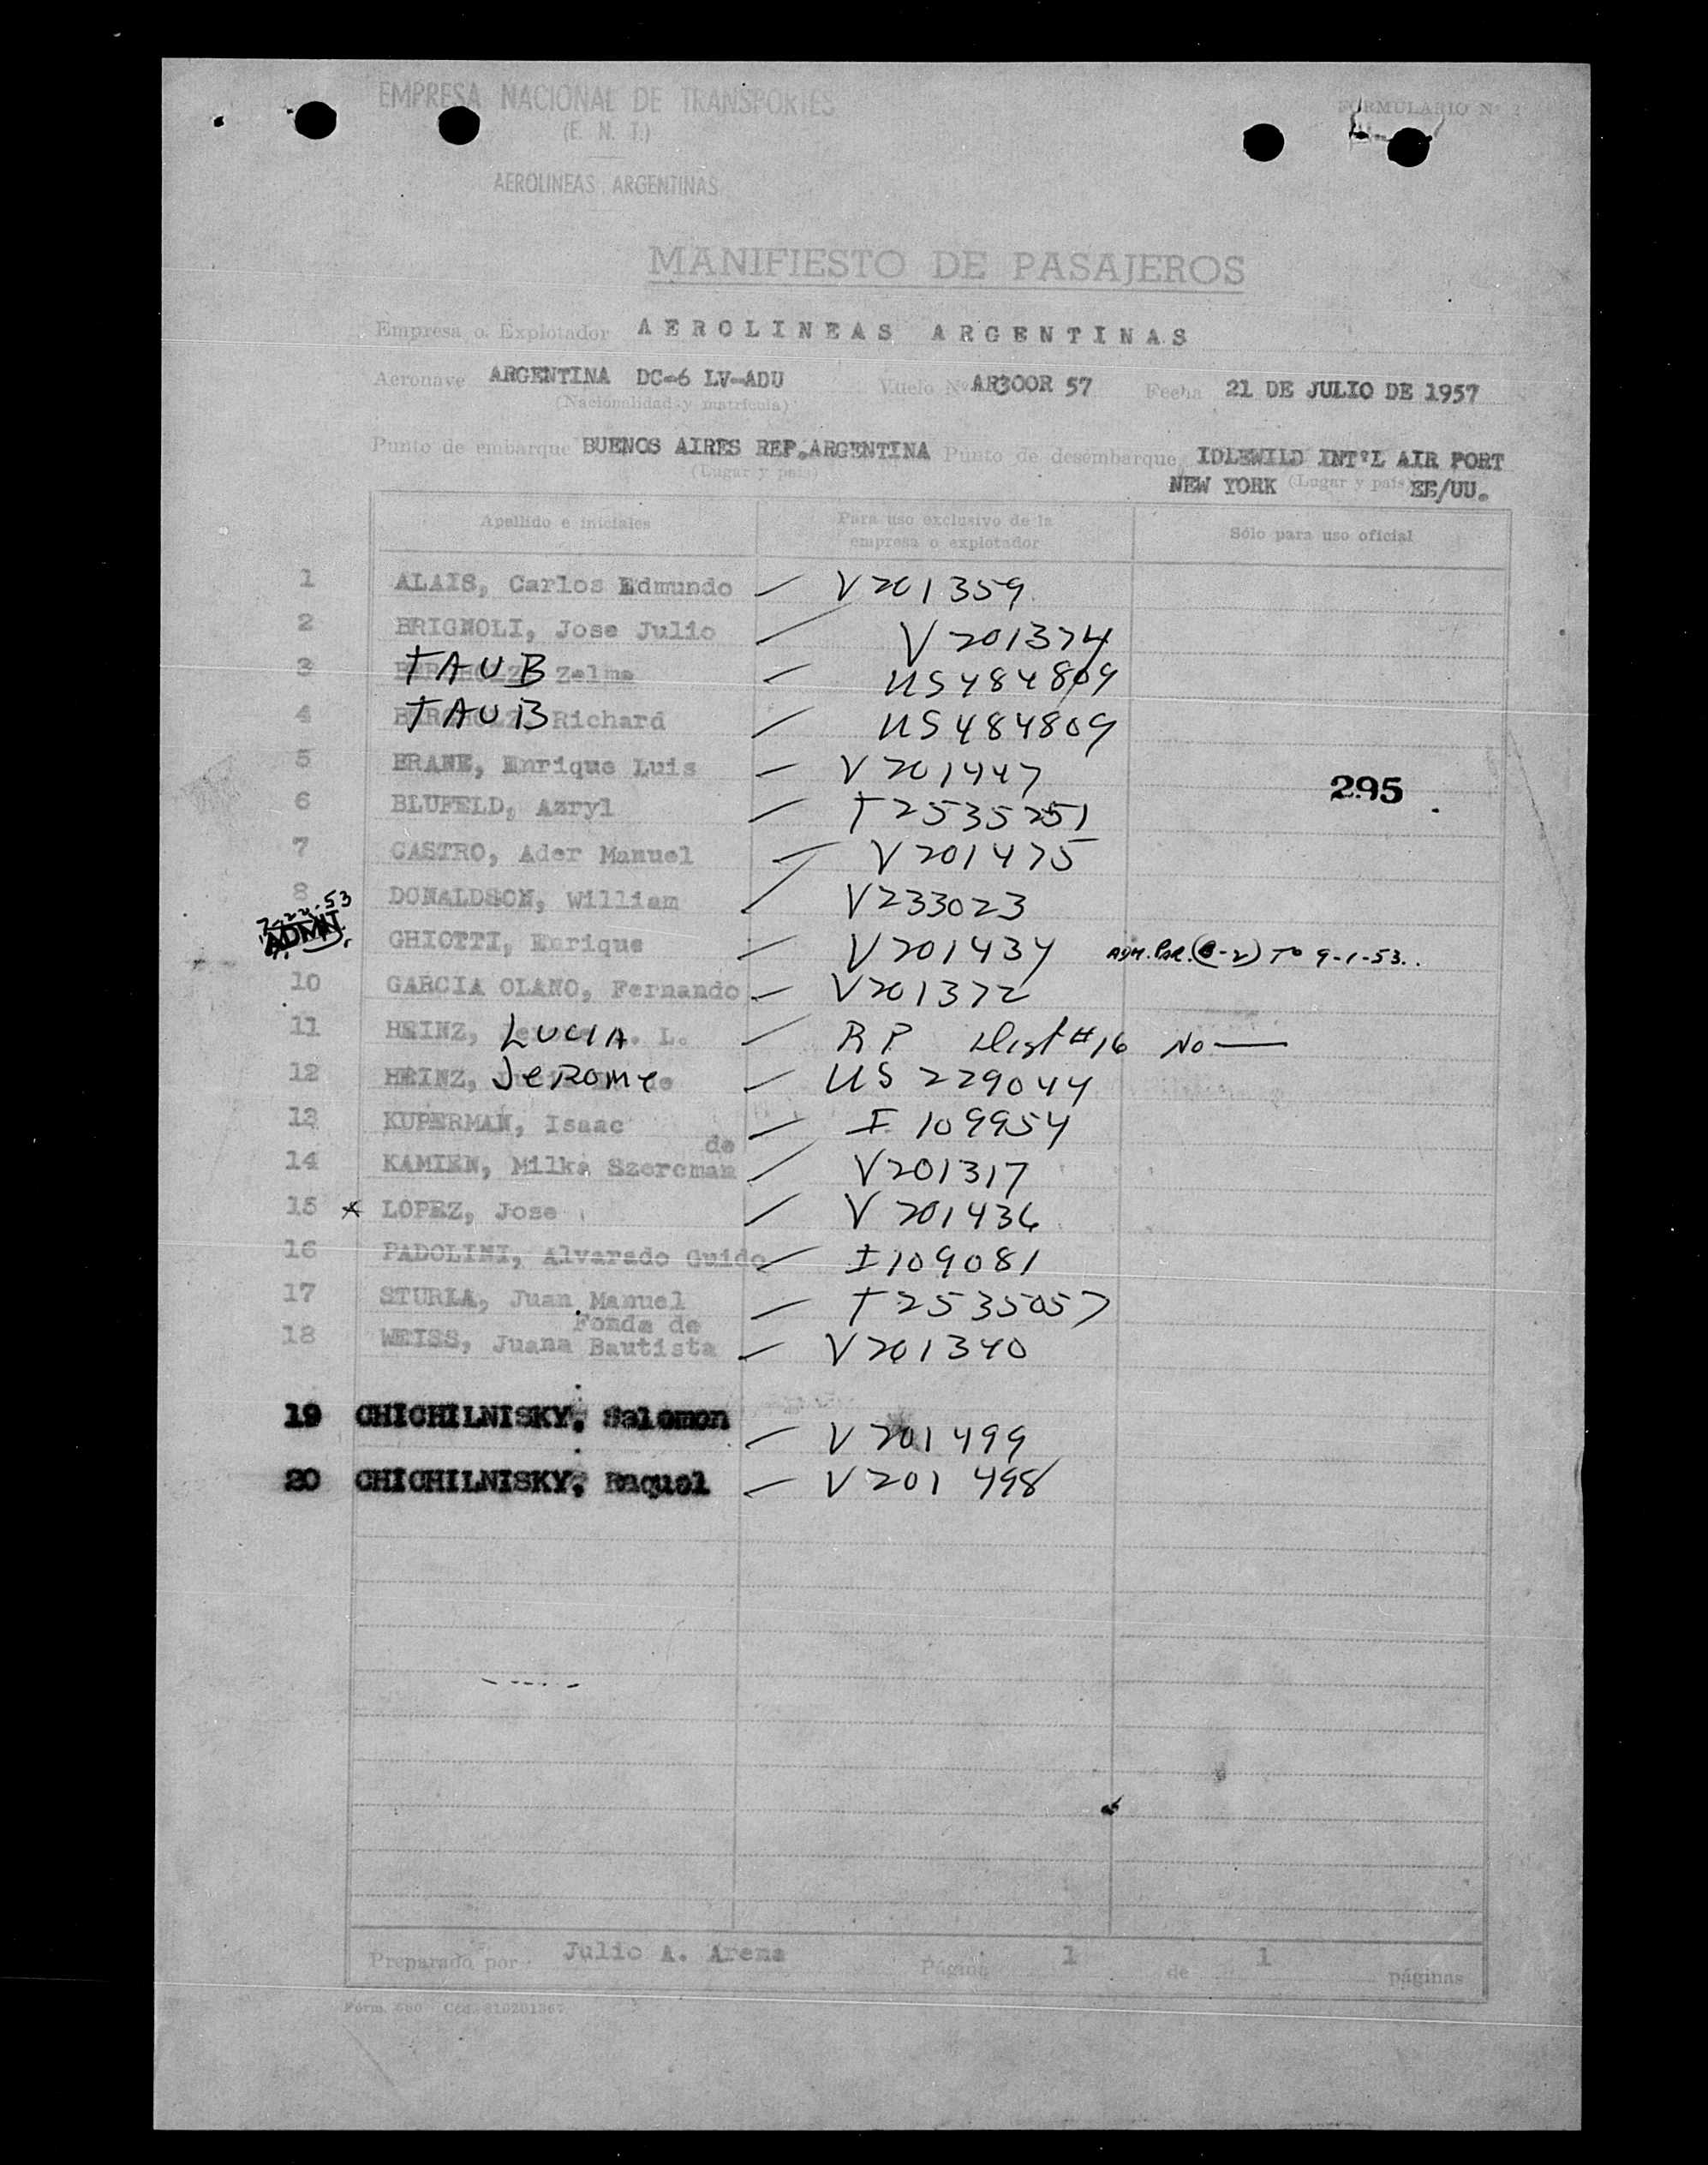 EMPRESA NACIONAL DE TRANSPORTES
(E. N. T.)
AEROLINEAS ARGENTINAS
FORMULARIO Nº
MANIFIESTO DE PASAJEROS
Empresa o Explotador AEROLINEAS ARGENTINAS
Aeronave ARGENTINA DC-6 LV-ADU Vuelo Nº AR300R 57 Fecha 21 DE JULIO DE 1957
(Nacionalidad y matrícula)
Punto de embarque BUENOS AIRES REP.ARGENTINA Punto de desembarque IDLEWILD INT'L AIR PORT
(Lugar y país) NEW YORK (Lugar y país) EE/UU.
Apellido e iniciales Para uso exclusivo de la empresa o explotador Sólo para uso oficial
1 ALAIS, Carlos Edmundo — V201359
2 BRIGNOLI, Jose Julio — V201374
3 TAUB Zelma — US484809
4 TAUB Richard — US484809
5 BRANE, Enrique Luis — V201447
295
6 BLUFELD, Azryl — T2535251
7 CASTRO, Ader Manuel — V201475
8 DONALDSON, William — V233023
7-22-53
ADMIT. GHIOTTI, Enrique — V201434 ADM. PAR. (B-2) TO 9-1-53.
10 GARCIA OLANO, Fernando — V201372
11 HEINZ, LUCIA L. — RP List #16 No —
12 HEINZ, JeROMe — US 229044
13 KUPERMAN, Isaac — I 109954
de
14 KAMIEN, Milka Szercman — V201317
15 x LOPEZ, Jose — V201436
16 PADOLINI, Alvarado Guido — I109081
17 STURLA, Juan Manuel — T2535057
Fonda de
18 WEISS, Juana Bautista — V201340
19 CHICHILNISKY, Salomon — V201499
20 CHICHILNISKY, Raquel — V201498
Preparado por: Julio A. Arena Página 1 de 1 páginas